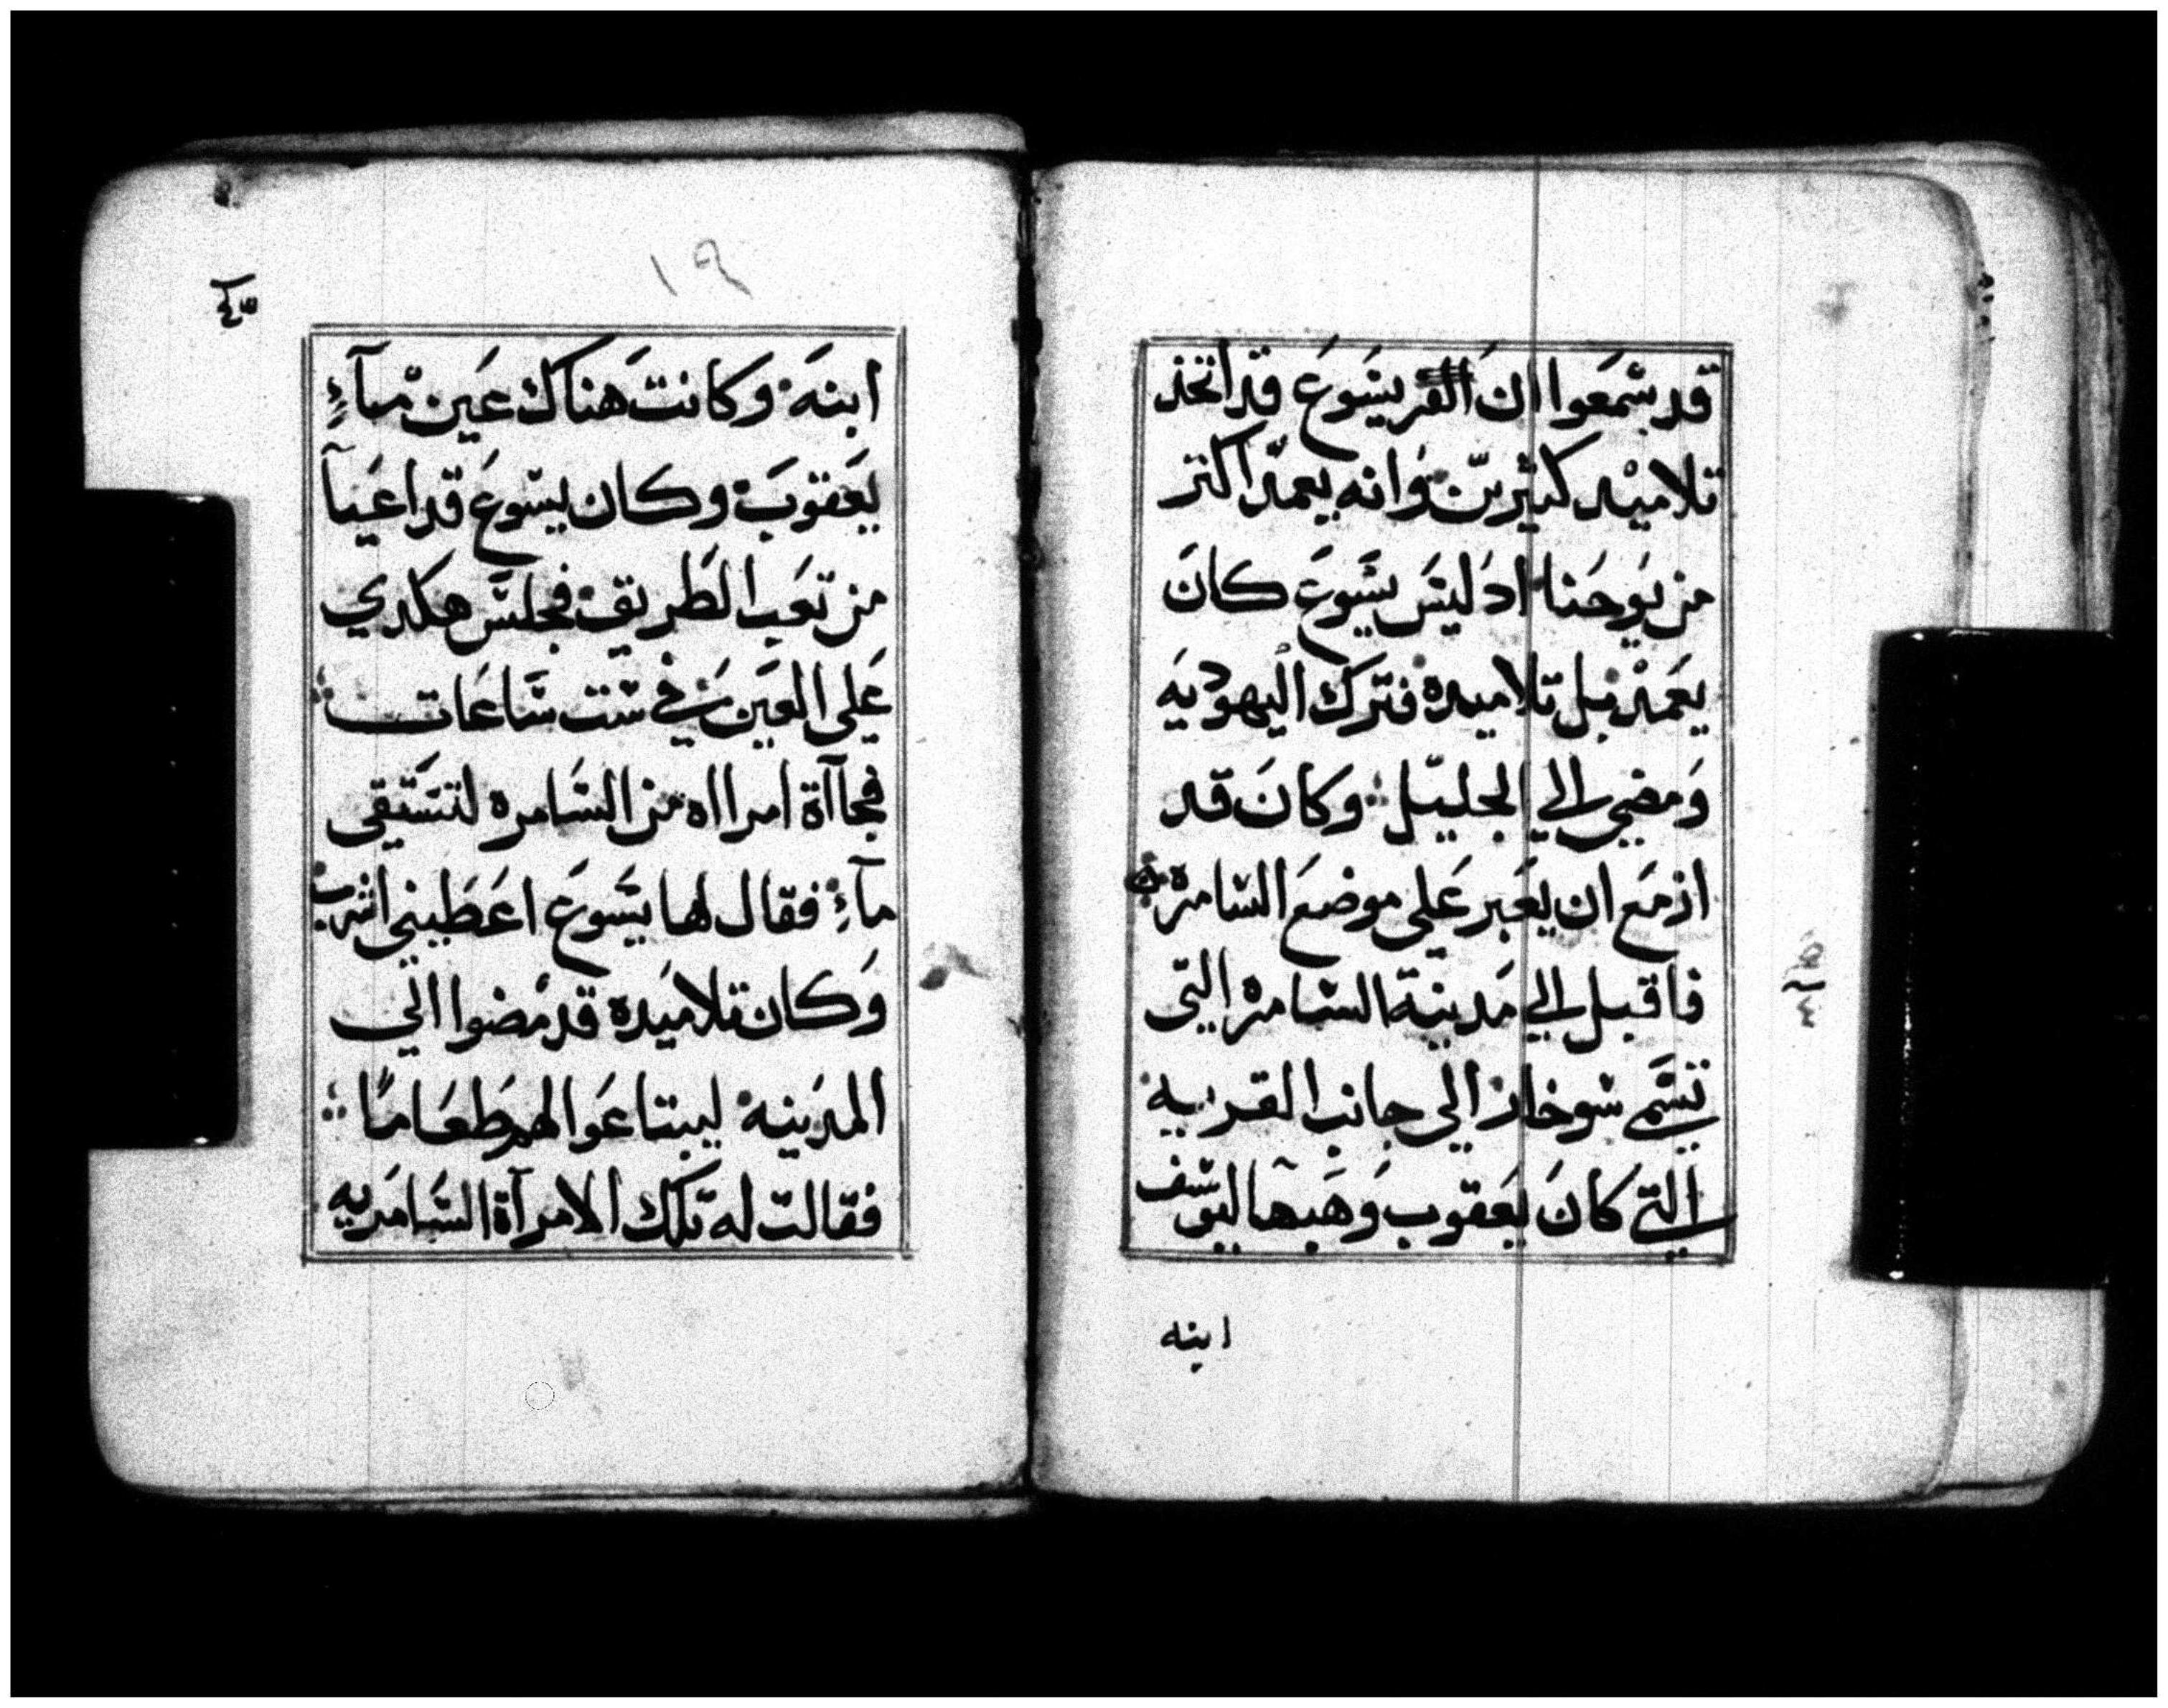 قد سمعوا ان يسوع قد اتخذ
تلاميد كثيرين وانه يعمد اكثر
من يوحنا اد ليس يسوع كان
يعمد بل تلاميده فترك اليهوديه
ومضي الي الجليل وكان قد
ازمع ان يعبر علي موضع السامرة
فاقبل الي مدينة السامره التي
تسمي سوخار الي جانب القريه
التي كان يعقوب وهبها ليوسف
ابنه
١٩
ابنه وكانت هناك عين مآءٍ
يعقوب وكان يسوع قد اعيآ
من تعب الطريق فجلس هكدي
علي العين في ست ساعات
فجاآة امرااه من السامره لتستقى
مآءٍ فقال لها يسوع اعطيني اشرب
وكان تلاميده قد مضوا الي
المدينه ليبتاعوا لهم طعاماً
فقالت له تلك الامرآة السامريه